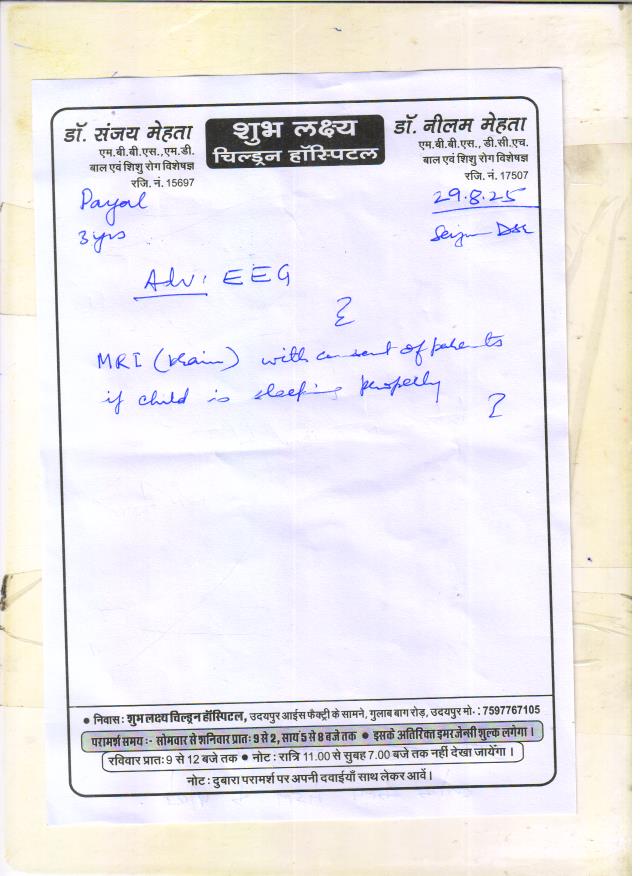 डॉ. संजय मेहता
एम.बी.बी.एस.,एम.डी.
बाल एवं शिशु रोग विशेषज्ञ
रजि. नं. 15697
शुभ लक्ष्य
चिल्ड्रन हॉस्पिटल
डॉ. नीलम मेहता
एम.बी.बी.एस., डी.सी.एच.
बाल एवं शिशु रोग विशेषज्ञ
रजि. नं. 17507
Payal
29.8.25
3 yrs
Adv: EEG
MRI (brain) with consent of parents
if child is sleeping properly
• निवास : शुभ लक्ष्य चिल्ड्रन हॉस्पिटल, उदयपुर आईस फैक्ट्री के सामने, गुलाब बाग रोड़, उदयपुर मो.- : 7597767105
परामर्श समय :- सोमवार से शनिवार प्रातः 9 से 2, सायं 5 से 8 बजे तक • इसके अतिरिक्त इमरजेन्सी शुल्क लगेगा।
रविवार प्रातः 9 से 12 बजे तक • नोट : रात्रि 11.00 से सुबह 7.00 बजे तक नहीं देखा जायेंगा।
नोट : दुबारा परामर्श पर अपनी दवाईयाँ साथ लेकर आवें।